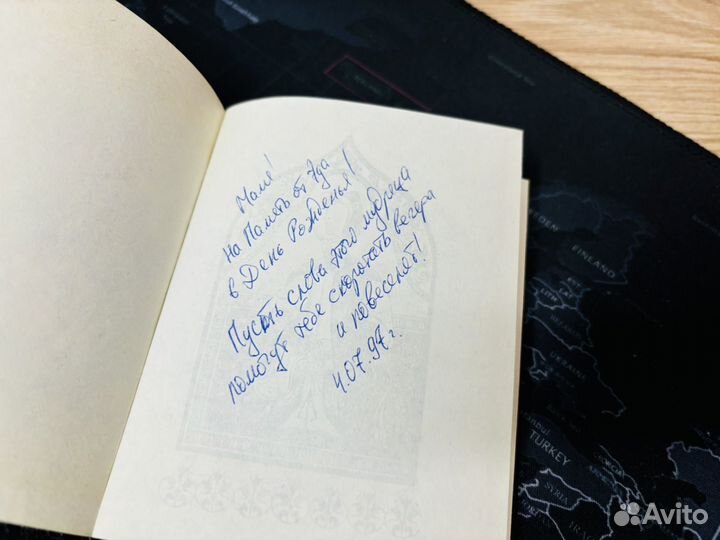 Маме!
На Память от Эда
в День Рожденья!
Пусть слова этого мудреца
помогут тебе скоротать вечера
и повеселят!
4.07.97г.
FINLAND
UKRAINE
TURKEY
SYRIA
Avito